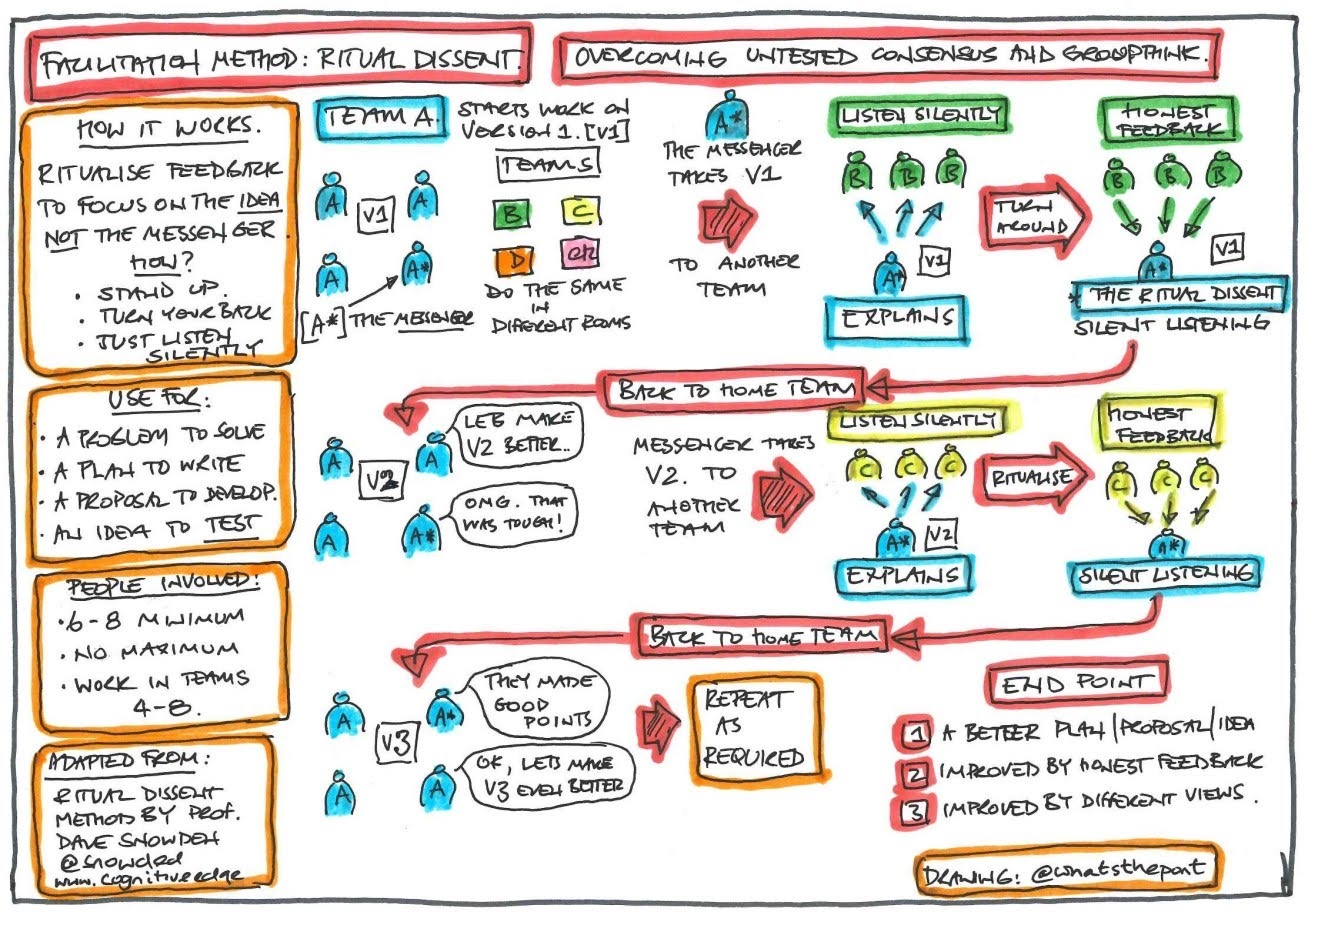 FACILITATION METHOD: RITUAL DISSENT.
OVERCOMING UNTESTED CONSENSUS AND GROUPTHINK.
HOW IT WORKS.
RITUALISE FEEDBACK
TO FOCUS ON THE IDEA
NOT THE MESSENGER.
HOW?
· STAND UP.
· TURN YOUR BACK
· JUST LISTEN
SILENTLY
USE FOR:
· A PROBLEM TO SOLVE
· A PLAN TO WRITE
· A PROPOSAL TO DEVELOP.
· AN IDEA TO TEST
PEOPLE INVOLVED:
· 6-8 MINIMUM
· NO MAXIMUM
· WORK IN TEAMS
4-8.
ADAPTED FROM:
RITUAL DISSENT
METHOD BY PROF.
DAVE SNOWDEN
@snowded
www.cognitiveedge
TEAM A.
STARTS WORK ON
VERSION 1. [V1]
A
A
V1
A
A*
[A*] THE MESSENGER
TEAMS
B
C
D
DO THE SAME
IN
DIFFERENT ROOMS
A*
THE MESSENGER
TAKES V1
TO ANOTHER
TEAM
LISTEN SILENTLY
B
B
B
A*
V1
EXPLAINS
TURN
AROUND
HONEST
FEEDBACK
B
B
B
V1
A*
* THE RITUAL DISSENT
SILENT LISTENING
BACK TO HOME TEAM
A
A
V2
A
A*
LETS MAKE
V2 BETTER..
OMG. THAT
WAS TOUGH!
MESSENGER TAKES
V2. TO
ANOTHER
TEAM
LISTEN SILENTLY
C
C
C
A*
V2
EXPLAINS
RITUALISE
HONEST
FEEDBACK
C
C
C
A*
SILENT LISTENING
BACK TO HOME TEAM
A
A*
V3
A
A
THEY MADE
GOOD
POINTS
OK, LETS MAKE
V3 EVEN BETTER
REPEAT
AS
REQUIRED
END POINT
1 A BETTER PLAN/PROPOSAL/IDEA
2 IMPROVED BY HONEST FEEDBACK
3 IMPROVED BY DIFFERENT VIEWS.
DRAWING: @whatsthepont